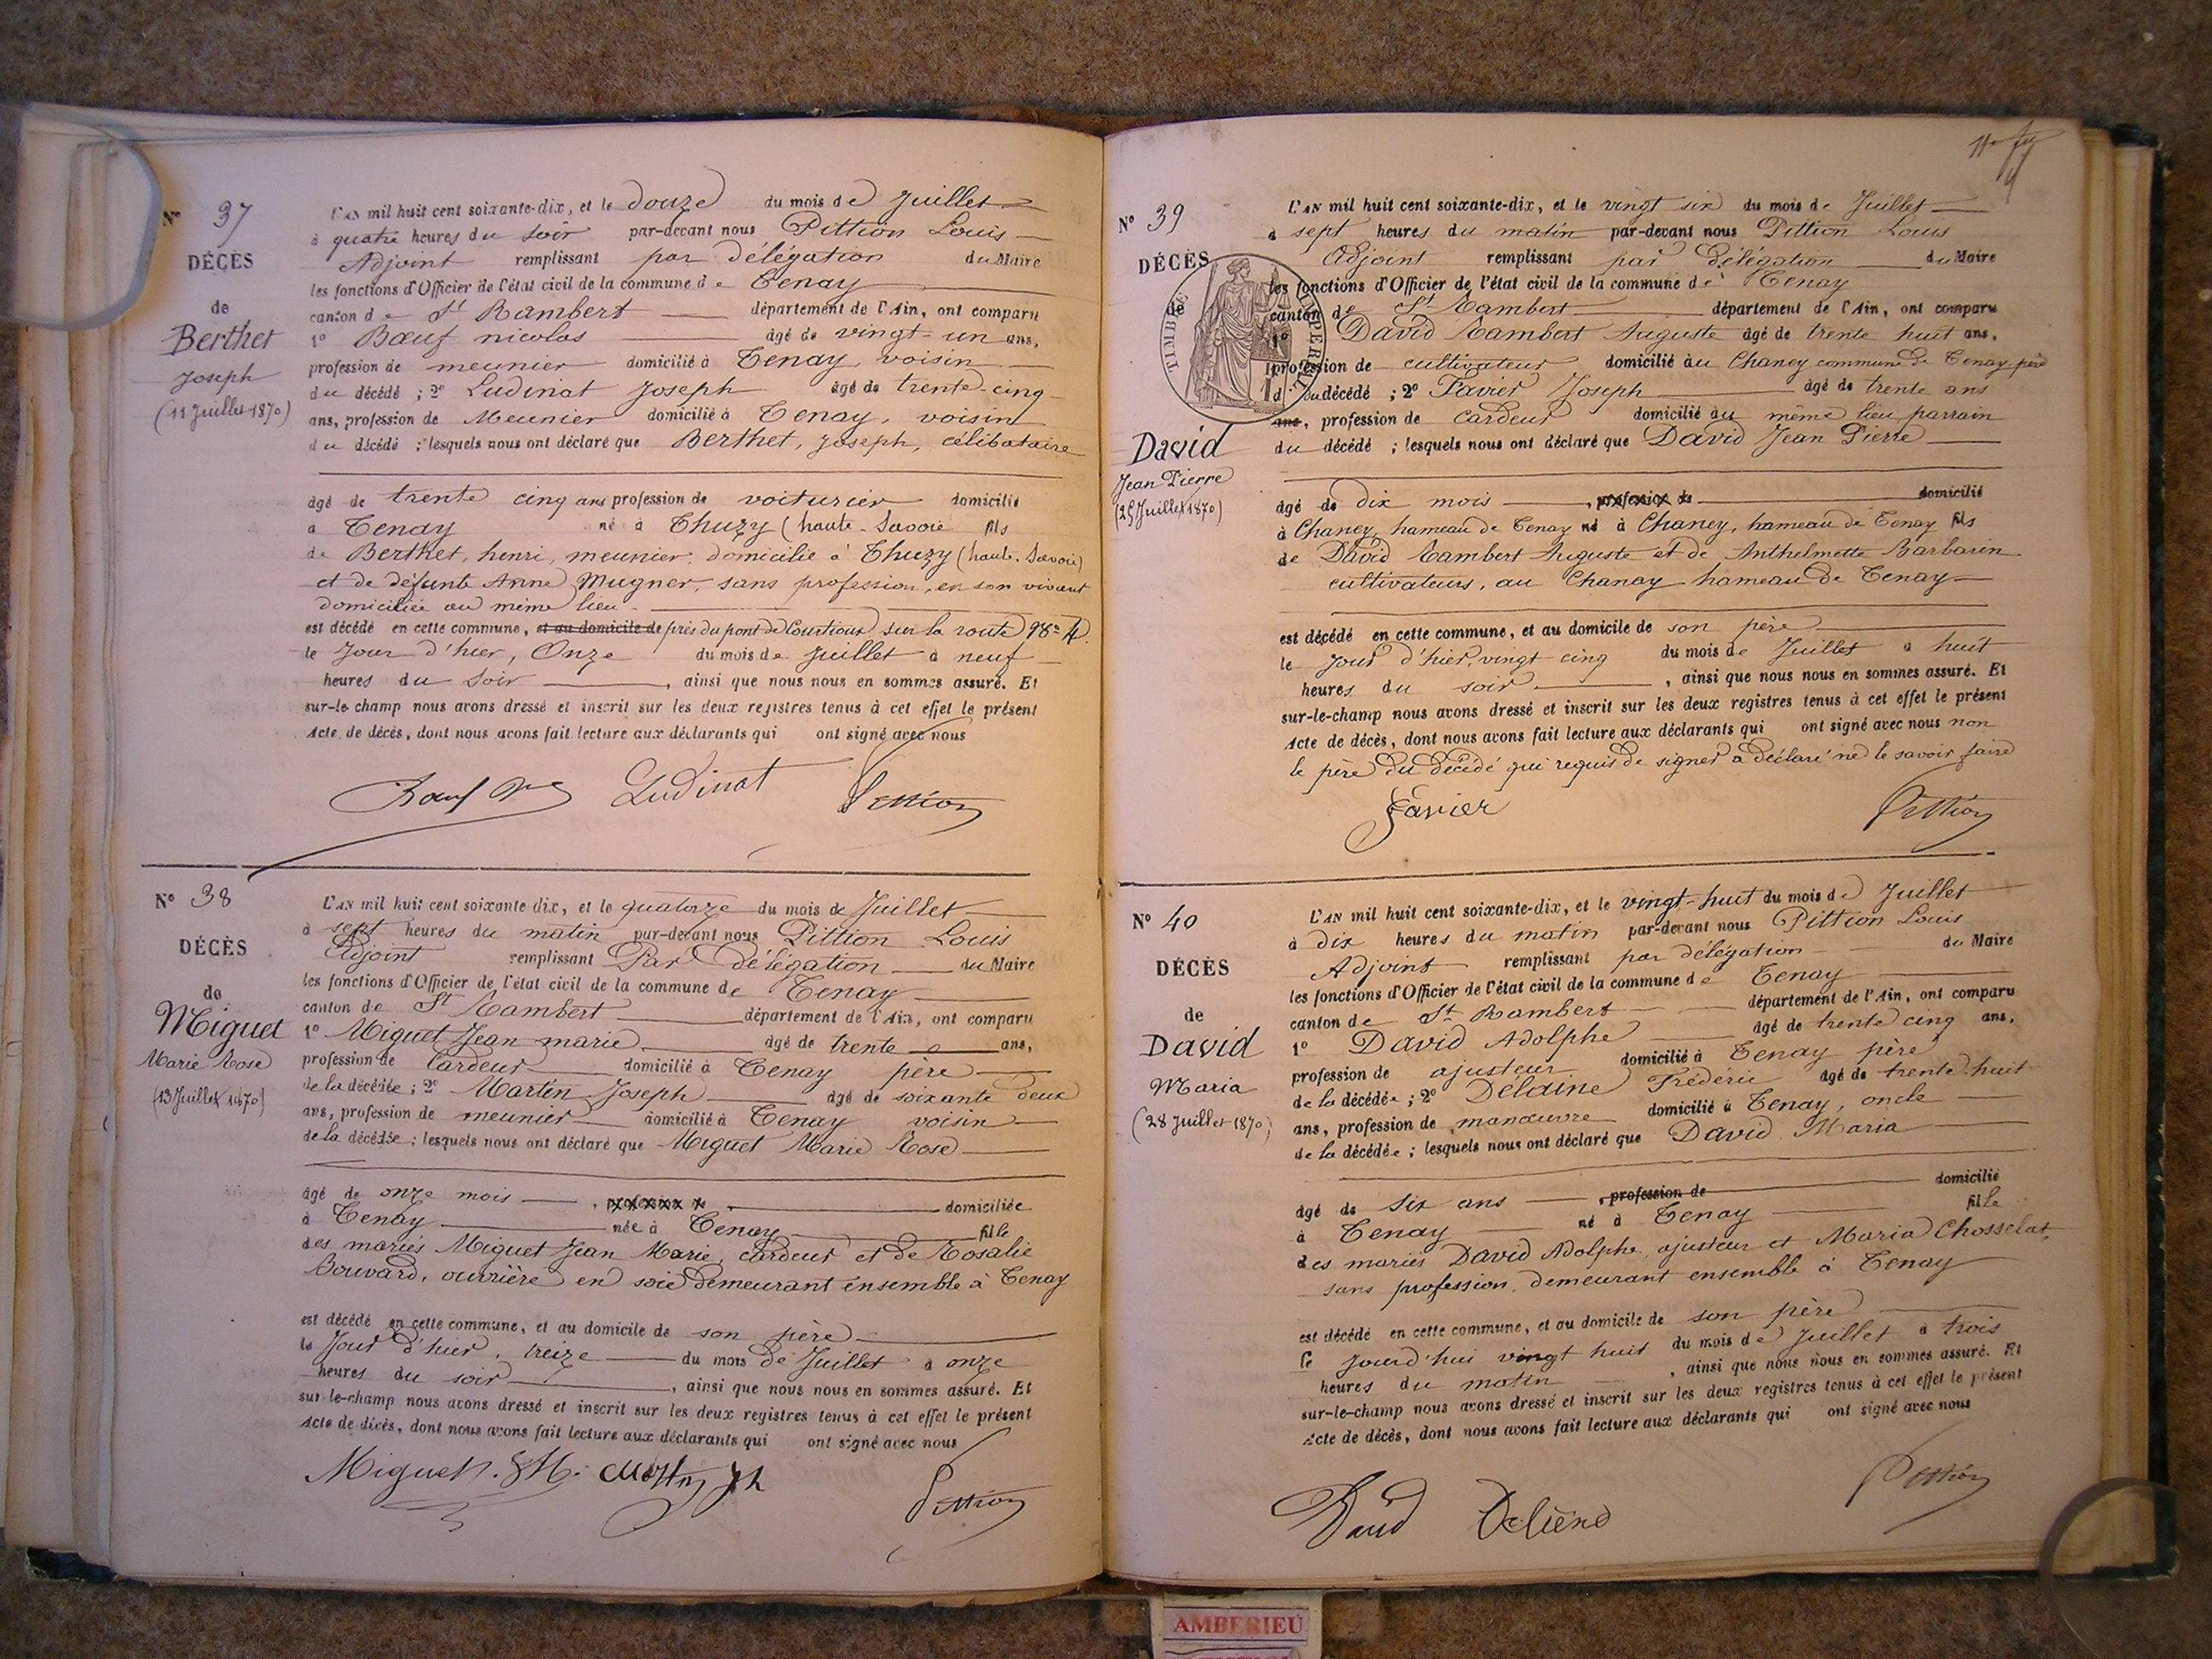 N° 37
DÉCÈS
de
Berthet
Joseph
(11 Juillet 1870)
L'AN mil huit cent soixante-dix, et le douze du mois de Juillet
à quatre heures du soir par-devant nous Pittion Louis
Adjoint remplissant par délégation du Maire
les fonctions d'Officier de l'état civil de la commune de Tenay
canton de St Rambert département de l'Ain, ont comparu
1° Bœuf nicolas âgé de vingt-un ans,
profession de meunier domicilié à Tenay, voisin
du décédé ; 2° Ludinat Joseph âgé de trente-cinq
ans, profession de Meunier domicilié à Tenay, voisin
du décédé ; lesquels nous ont déclaré que Berthet, Joseph, célibataire
âgé de trente cinq ans profession de voiturier domicilié
à Tenay né à Thuzy (haute-Savoie fils
de Berthet, henri, meunier, domicilié à Thuzy (haute-Savoie)
et de défunte Anne Mugner, sans profession, en son vivant
domiciliée au même lieu
est décédé en cette commune, et au domicile de près du pont de Courtioux sur la route
le Jour d'hier, Onze du mois de Juillet à neuf
heures du Soir , ainsi que nous nous en sommes assuré. Et
sur-le-champ nous avons dressé et inscrit sur les deux registres tenus à cet effet le présent
Acte de décès, dont nous avons fait lecture aux déclarants qui ont signé avec nous
Bœuf Ludinat Pittion
N° 38
DÉCÈS
de
Miguet
Marie Rose
(13 Juillet 1870)
L'AN mil huit cent soixante-dix, et le quatorze du mois de Juillet
à sept heures du matin par-devant nous Pittion Louis
Adjoint remplissant Par Délégation du Maire
les fonctions d'Officier de l'état civil de la commune de Tenay
canton de St Rambert département de l'Ain, ont comparu
1° Miguet Jean marie âgé de trente ans,
profession de Cardeur domicilié à Tenay père
de la décédée ; 2° Martin Joseph âgé de soixante deux
ans, profession de meunier domicilié à Tenay voisin
de la décédée ; lesquels nous ont déclaré que Miguet Marie Rose
âgé de onze mois , profession de domiciliée
à Tenay née à Tenay fille
des mariés Miguet Jean Marie, cardeur et de Rosalie
Bouvard, ouvrière en soie demeurant ensemble à Tenay
est décédé en cette commune, et au domicile de son père
le Jour d'hier, treize du mois de Juillet à onze
heures du soir , ainsi que nous nous en sommes assuré. Et
sur-le-champ nous avons dressé et inscrit sur les deux registres tenus à cet effet le présent
Acte de décès, dont nous avons fait lecture aux déclarants qui ont signé avec nous
Miguet J M. Martin Jh Pittion
N° 39
DÉCÈS
de
TIMBRE IMPERIAL
David
Jean Pierre
(25 Juillet 1870)
L'AN mil huit cent soixante-dix, et le vingt six du mois de Juillet
à sept heures du matin par-devant nous Pittion Louis
Adjoint remplissant par Délégation du Maire
les fonctions d'Officier de l'état civil de la commune de Tenay
canton de St Rambert département de l'Ain, ont comparu
1° David Rambert Auguste âgé de trente huit ans,
profession de cultivateur domicilié au Chaney commune de Tenay père
du décédé ; 2° Favier Joseph âgé de trente ans
ans, profession de Cardeur domicilié au même lieu parrain
du décédé ; lesquels nous ont déclaré que David Jean Pierre
âgé de dix mois , profession de domicilié
à Chaney, hameau de Tenay né à Chaney, hameau de Tenay fils
de David Rambert Auguste et de Anthelmette Barbarin
cultivateurs, au Chanay hameau de Tenay
est décédé en cette commune, et au domicile de son père
le jour d'hier, vingt cinq du mois de Juillet à huit
heures du soir , ainsi que nous nous en sommes assuré. Et
sur-le-champ nous avons dressé et inscrit sur les deux registres tenus à cet effet le présent
Acte de décès, dont nous avons fait lecture aux déclarants qui ont signé avec nous non
le père du décédé qui requis de signer a déclaré ne le savoir faire
Favier Pittion
N° 40
DÉCÈS
de
David
Maria
(28 Juillet 1870)
L'AN mil huit cent soixante-dix, et le vingt-huit du mois de Juillet
à dix heures du matin par-devant nous Pittion Louis
Adjoint remplissant par délégation du Maire
les fonctions d'Officier de l'état civil de la commune de Tenay
canton de St Rambert département de l'Ain, ont comparu
1° David Adolphe âgé de trente cinq ans,
profession de ajusteur domicilié à Tenay père
de la décédée ; 2° Delaine Frédéric âgé de trente-huit
ans, profession de manœuvre domicilié à Tenay, oncle
de la décédée ; lesquels nous ont déclaré que David Maria
âgé de six ans , profession de domicilié
à Tenay né à Tenay fille
des mariés David Adolphe, ajusteur et Maria Chosselat,
sans profession, demeurant ensemble à Tenay
est décédé en cette commune, et au domicile de son père
le jourd'hui vingt huit du mois de Juillet à trois
heures du matin , ainsi que nous nous en sommes assuré. Et
sur-le-champ nous avons dressé et inscrit sur les deux registres tenus à cet effet le présent
Acte de décès, dont nous avons fait lecture aux déclarants qui ont signé avec nous
David Deliène Pittion
AMBERIEU